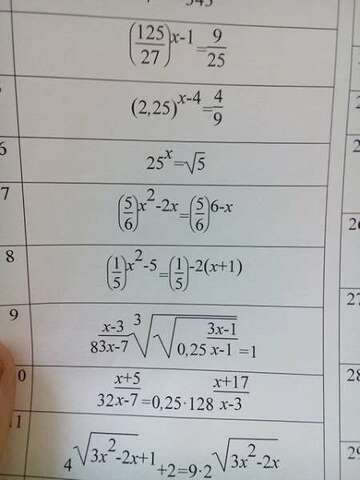 343
(125/27)^(x-1)=9/25
(2,25)^(x-4)=4/9
6 25^x=√5
7 (5/6)^(x^2-2x)=(5/6)^(6-x)
8 (1/5)^(x^2-5)=(1/5)^(-2(x+1))
9 8^((x-3)/(3x-7)) ∛√(0,25^((3x-1)/(x-1)))=1
0 32^((x+5)/(x-7))=0,25·128^((x+17)/(x-3))
1 4^(√(3x^2-2x)+1)+2=9·2^(√(3x^2-2x))
2
2
26
27
28
29